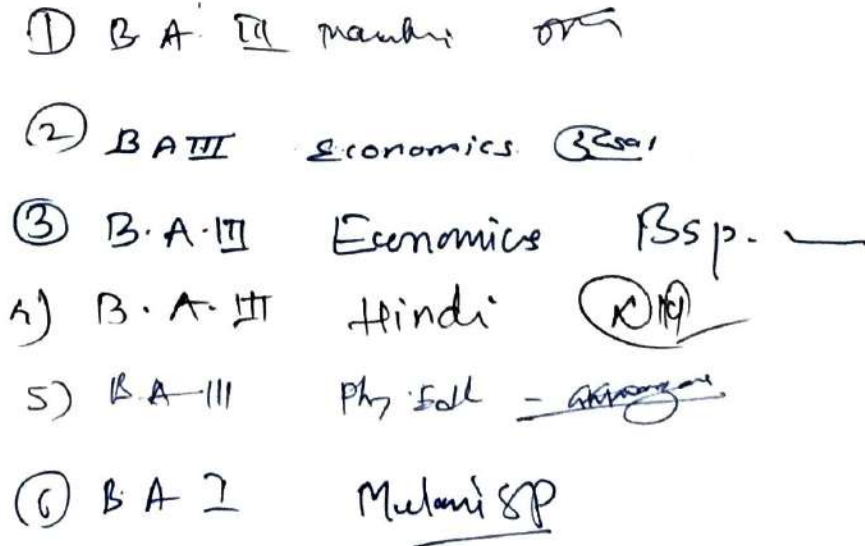 ① B A. III
② B A III Economics
③ B.A.III Economics Bsp.
4) B.A. III Hindi
5) B A III Phy. Edl
⑥ B A I Mulani SP